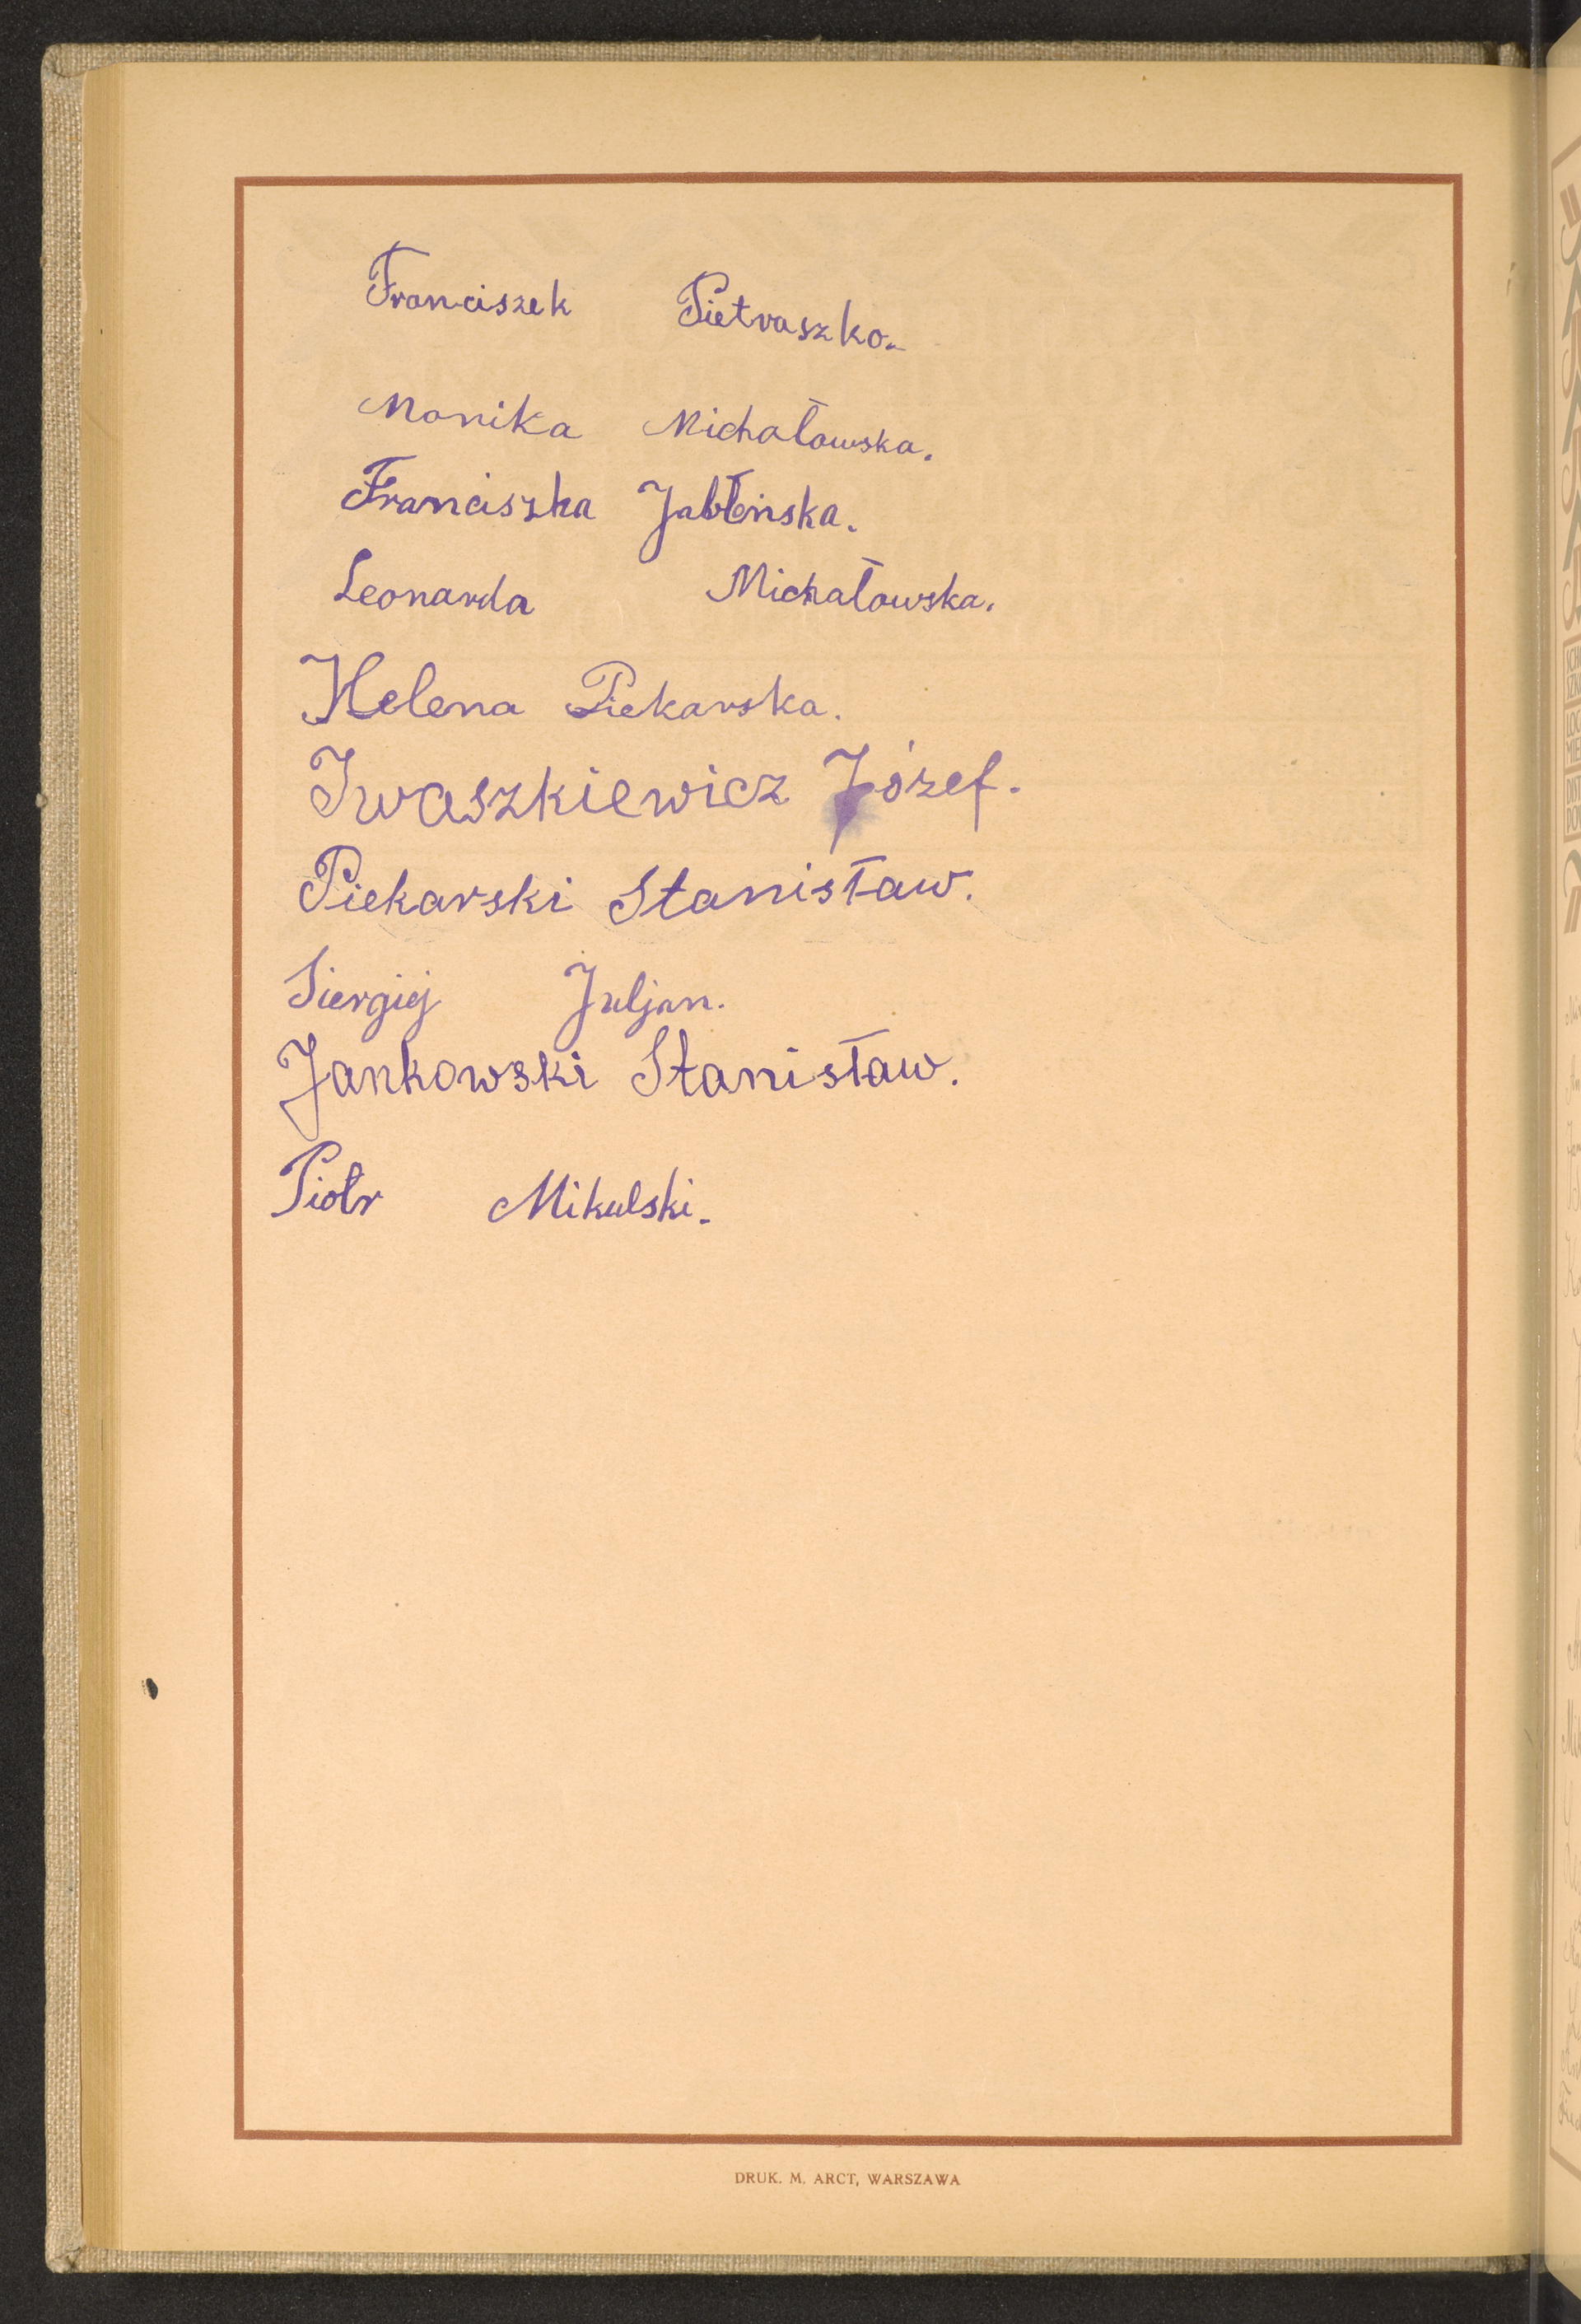 Franciszek Pietraszko.
Monika Michałowska.
Franciszka Jabłońska.
Leonarda Michałowska.
Helena Piekarska.
Iwaszkiewicz Józef.
Piekarski Stanisław.
Siergiej Juljan.
Jankowski Stanisław.
Piotr Mikulski.
DRUK. M. ARCT, WARSZAWA